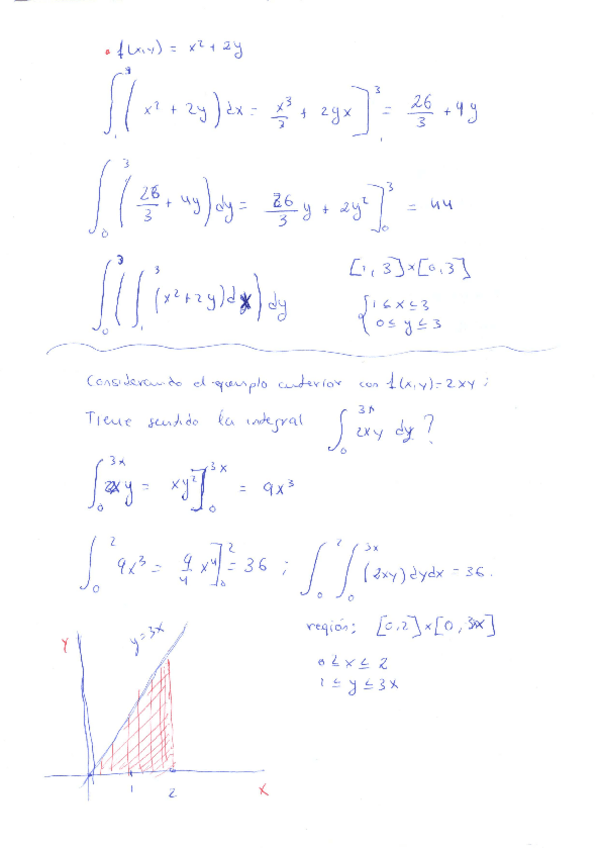 • f(x,y) = x² + 2y
∫₁³ (x² + 2y) dx = x³/3 + 2yx ]₁³ = 26/3 + 4y
∫₀³ (26/3 + 4y) dy = 26/3 y + 2y² ]₀³ = 44
∫₀³ (∫₁³ (x² + 2y) dx) dy
[1, 3] × [0, 3]
{ 1 ≤ x ≤ 3
0 ≤ y ≤ 3
Considerando el ejemplo anterior con f(x,y) = 2xy ;
Tiene sentido la integral ∫₀³ˣ 2xy dy ?
∫₀³ˣ 2xy = xy² ]₀³ˣ = 9x³
∫₀² 9x³ = 9/4 x⁴ ]₀² = 36 ; ∫₀² ∫₀³ˣ (2xy) dy dx = 36.
región: [0,2] × [0, 3x]
0 ≤ x ≤ 2
1 ≤ y ≤ 3x
y = 3x
Y
1 2 X